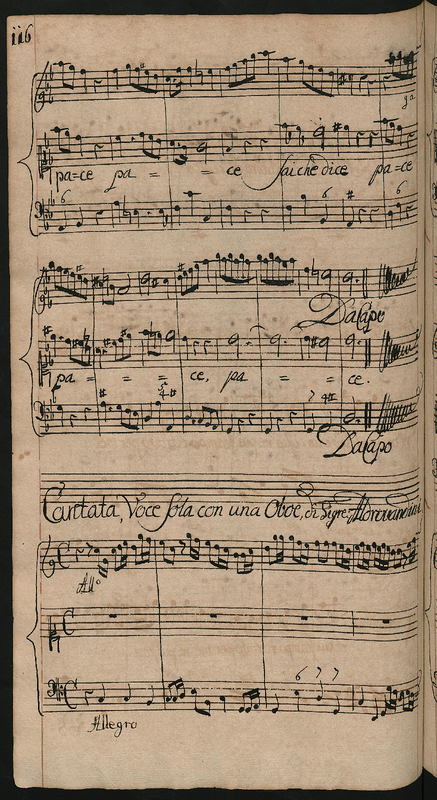 116
pa=ce pa = = ce sai che dice pa=ce
6 6 # 6
Da Capo
pa = = = ce, pa = = ce.
Da Capo
Cantata, Voce sola con una Oboe, di Sigre: Aldrovandini
All°
6 7 7
Allegro